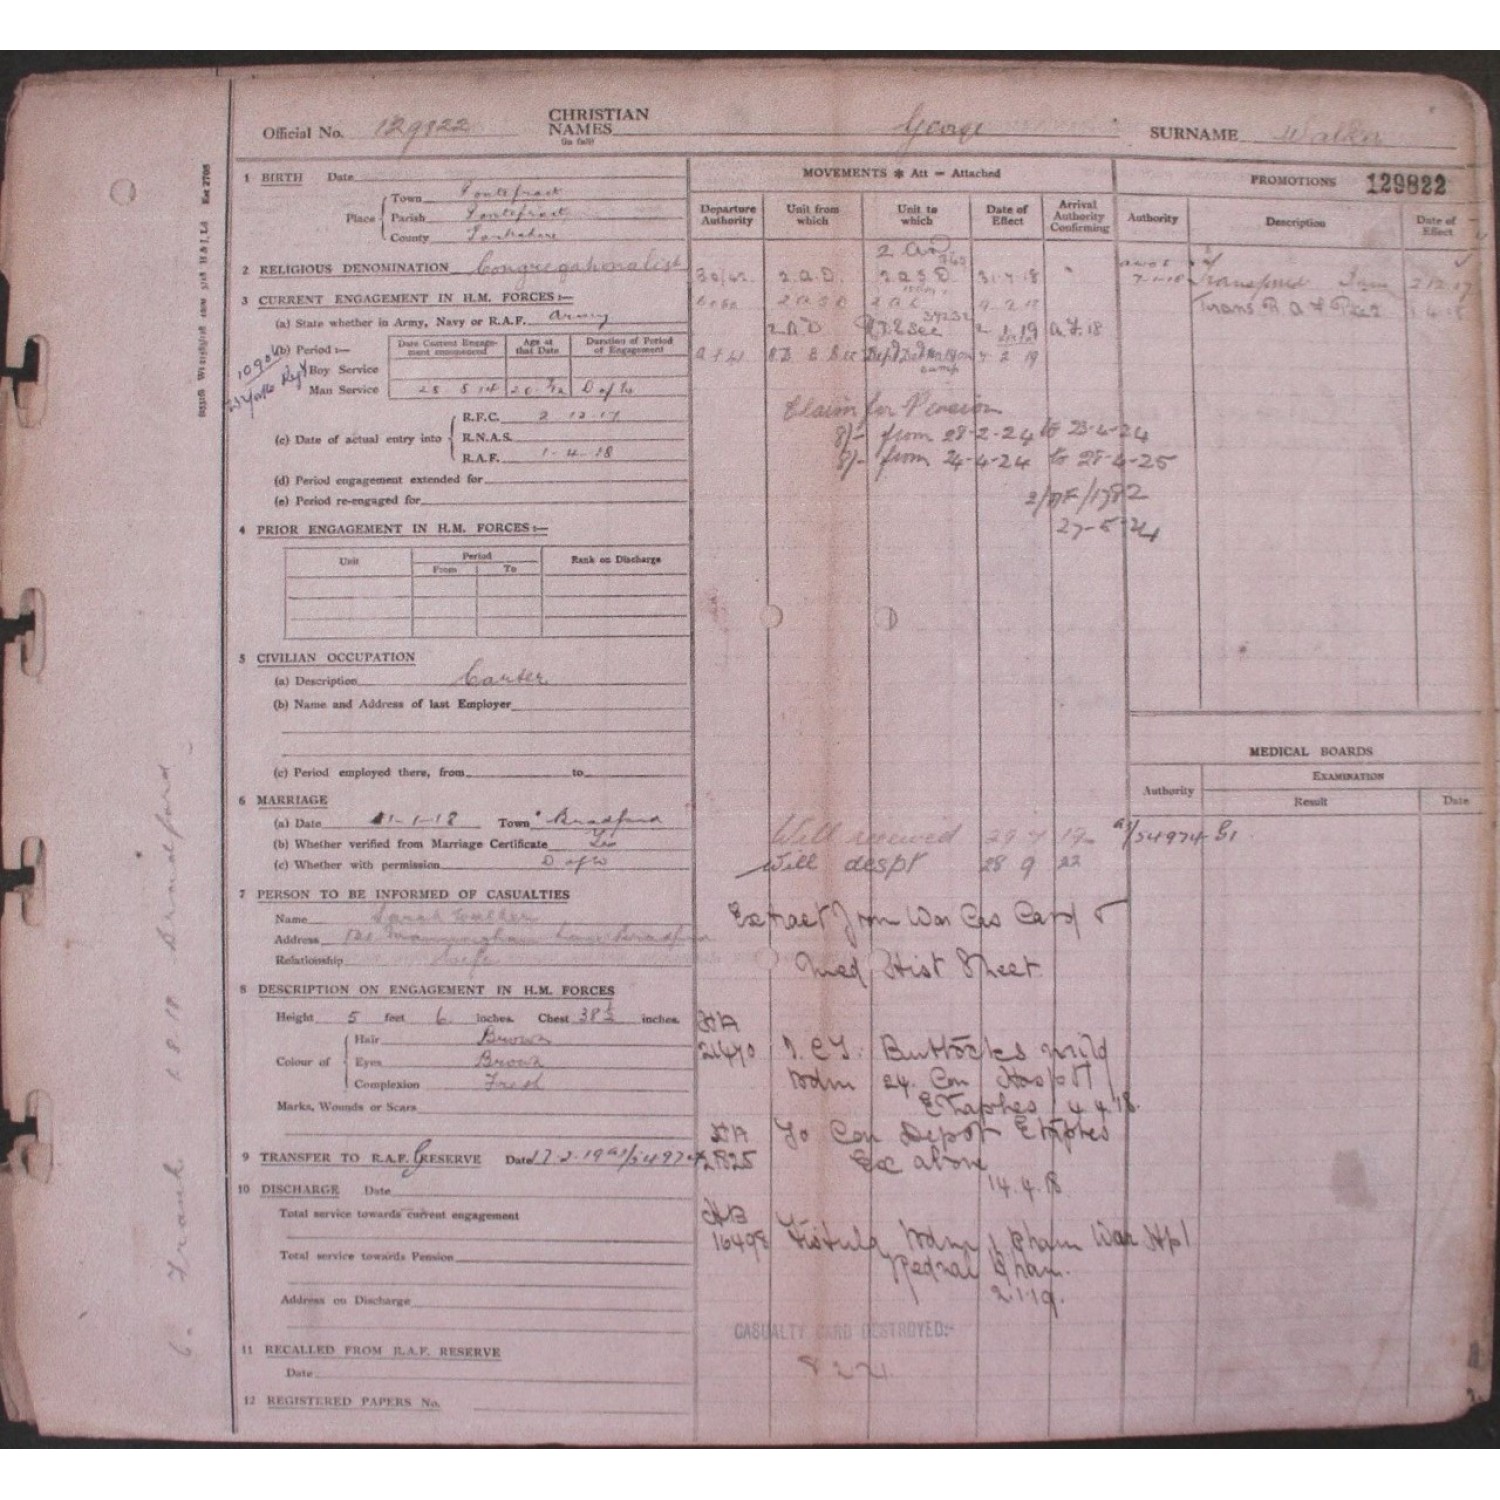 Official No. 129822 CHRISTIAN NAMES (in full) George SURNAME Walker
1 BIRTH Date
Place Town Pontefract
Parish Pontefract
County Yorkshire
2 RELIGIOUS DENOMINATION Congregationalist
3 CURRENT ENGAGEMENT IN H.M. FORCES:—
(a) State whether in Army, Navy or R.A.F. Army
(b) Period:— Date Current Engagement commenced Age at that Date Duration of Period of Engagement
Boy Service
Man Service 28 8 14 20 D of W
(c) Date of actual entry into R.F.C. 2 12 17
R.N.A.S.
R.A.F. 1-4-18
(d) Period engagement extended for
(e) Period re-engaged for
4 PRIOR ENGAGEMENT IN H.M. FORCES:—
Unit Period Rank on Discharge
From To
5 CIVILIAN OCCUPATION
(a) Description Carter
(b) Name and Address of last Employer
(c) Period employed there, from to
6 MARRIAGE
(a) Date 1-1-18 Town Bradford
(b) Whether verified from Marriage Certificate Yes
(c) Whether with permission D of W
7 PERSON TO BE INFORMED OF CASUALTIES
Name Sarah Walker
Address Manningham Lane Bradford
Relationship Wife
8 DESCRIPTION ON ENGAGEMENT IN H.M. FORCES
Height 5 feet 6 inches. Chest 38½ inches.
Colour of Hair Brown
Eyes Brown
Complexion Fresh
Marks, Wounds or Scars
9 TRANSFER TO R.A.F. G RESERVE Date 17-2-19 a/54974
10 DISCHARGE Date
Total service towards current engagement
Total service towards Pension
Address on Discharge
11 RECALLED FROM R.A.F. RESERVE
Date
12 REGISTERED PAPERS No.
MOVEMENTS * Att = Attached
Departure Authority Unit from which Unit to which Date of Effect Arrival Authority Confirming
2 A.D.
2.A.D. 2 A S D 31-7-18
2 A S D
2 A D 2 1 19 A F 18
2 19
Claim for Pension
8/- from 28-2-24 to 23-4-24
8/- from 24-4-24 to 28-4-25
27-5-24
Will received 29
Will despt 28 9 22
Extract from War Cas Card &
Med Hist Sheet
HA
21470 I.C.T. Buttocks mild
adm 24. Con Hospt
Etaples 4 4 18.
HA To Con Depot Etaples
2825 Ex above
14.4.18
HB
16498 Fistula adm Bham War Hpl
Rednal Bham.
2.1.19.
CASUALTY CARD DESTROYED:-
PROMOTIONS 129822
Authority Description Date of Effect
Transferred 2 12 17
Trans R A F 1.4.18
MEDICAL BOARDS
Authority EXAMINATION
Result Date
a/54974 G1.
G. Frank 1 8 18 Bradford